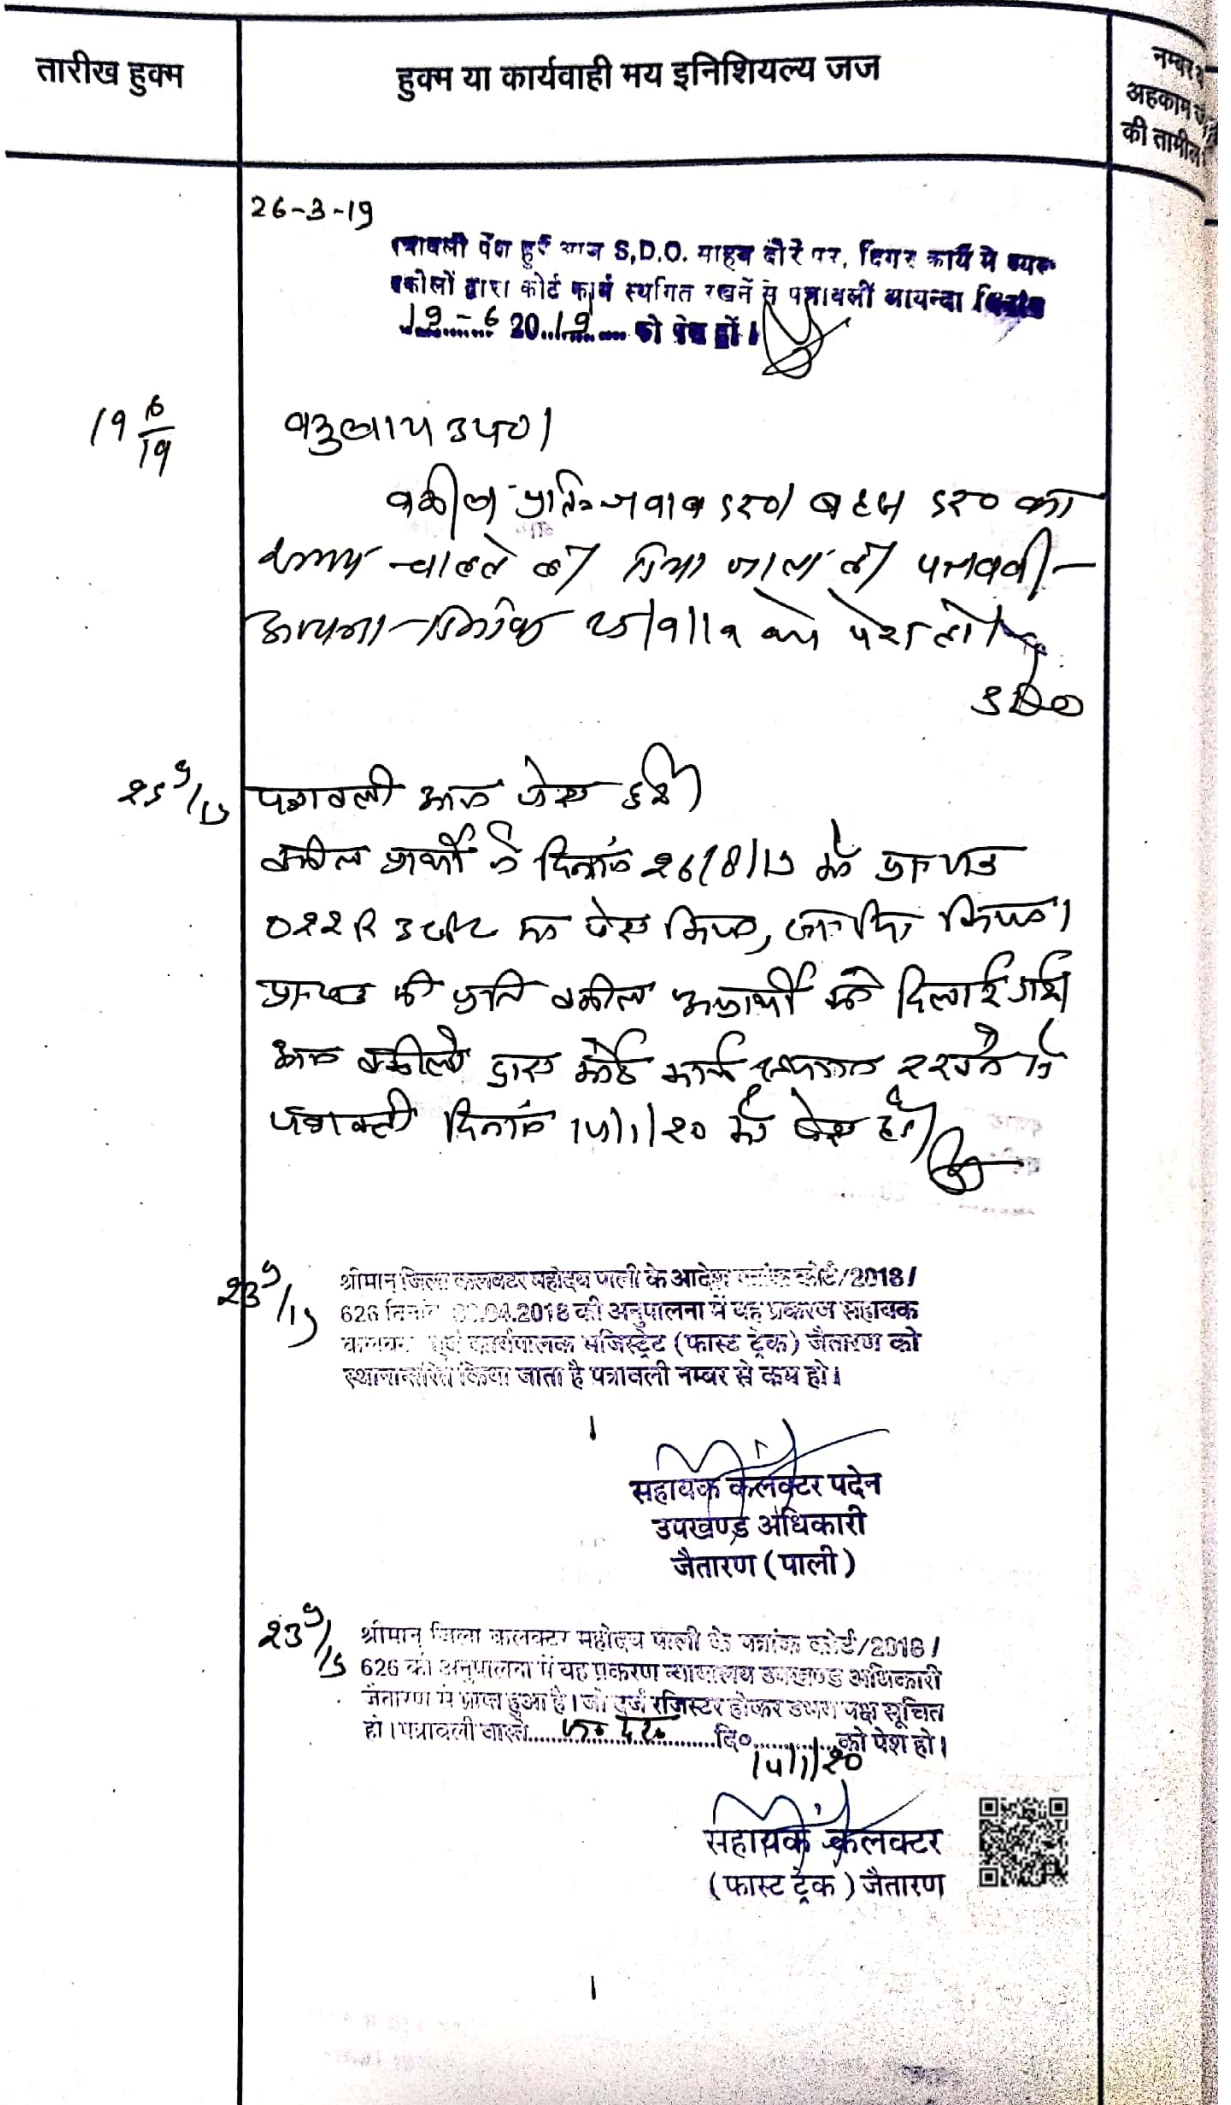 तारीख हुक्म
हुक्म या कार्यवाही मय इनिशियल्य जज
नम्बर
अहकाम
की तामील
26-3-19
पत्रावली पेश हुई आज S.D.O. साहब दौरे पर, दिगर कार्य मे व्यस्त
वकीलों द्वारा कोर्ट कार्य स्थगित रखनें से पत्रावली आयन्दा दिनांक
19-6 2019 को पेश हों।
19 6/19
वकुलाय उपo।
वकील जवाब बहस का
समय चाहते दिया पत्रावली
आयन्दा दिनांक को पेश हो।
SDO
25 9/19
पत्रावली आज पेश हुई।
वकील प्रार्थी ने दिनांक 26/8/19 को
022R पेश किया, किया।
की प्रति वकील अप्रार्थी को दिलाई गई।
आज वकीलों द्वारा कोर्ट कार्य रखने से
पत्रावली दिनांक 14/1/20 को पेश हो।
23 9/19
श्रीमान् जिला कलक्टर महोदय पाली के आदेश क्रमांक कोर्ट/2018/
626 दिनांक .04.2018 की अनुपालना में यह प्रकरण सहायक
कलक्टर एवं कार्यपालक मजिस्ट्रेट (फास्ट ट्रेक) जैतारण को
स्थानान्तरित किया जाता है पत्रावली नम्बर से कम हो।
सहायक कलक्टर पदेन
उपखण्ड अधिकारी
जैतारण (पाली)
23 9/19
श्रीमान् जिला कलक्टर महोदय पाली के क्रमांक कोर्ट/2018/
626 की अनुपालना में यह प्रकरण न्यायालय उपखण्ड अधिकारी
जैतारण से प्राप्त हुआ है। जो दर्ज रजिस्टर होकर उभय पक्ष सूचित
हो। पत्रावली वास्ते.......... दि०............को पेश हो।
14/1/20
सहायक कलक्टर
(फास्ट ट्रेक) जैतारण